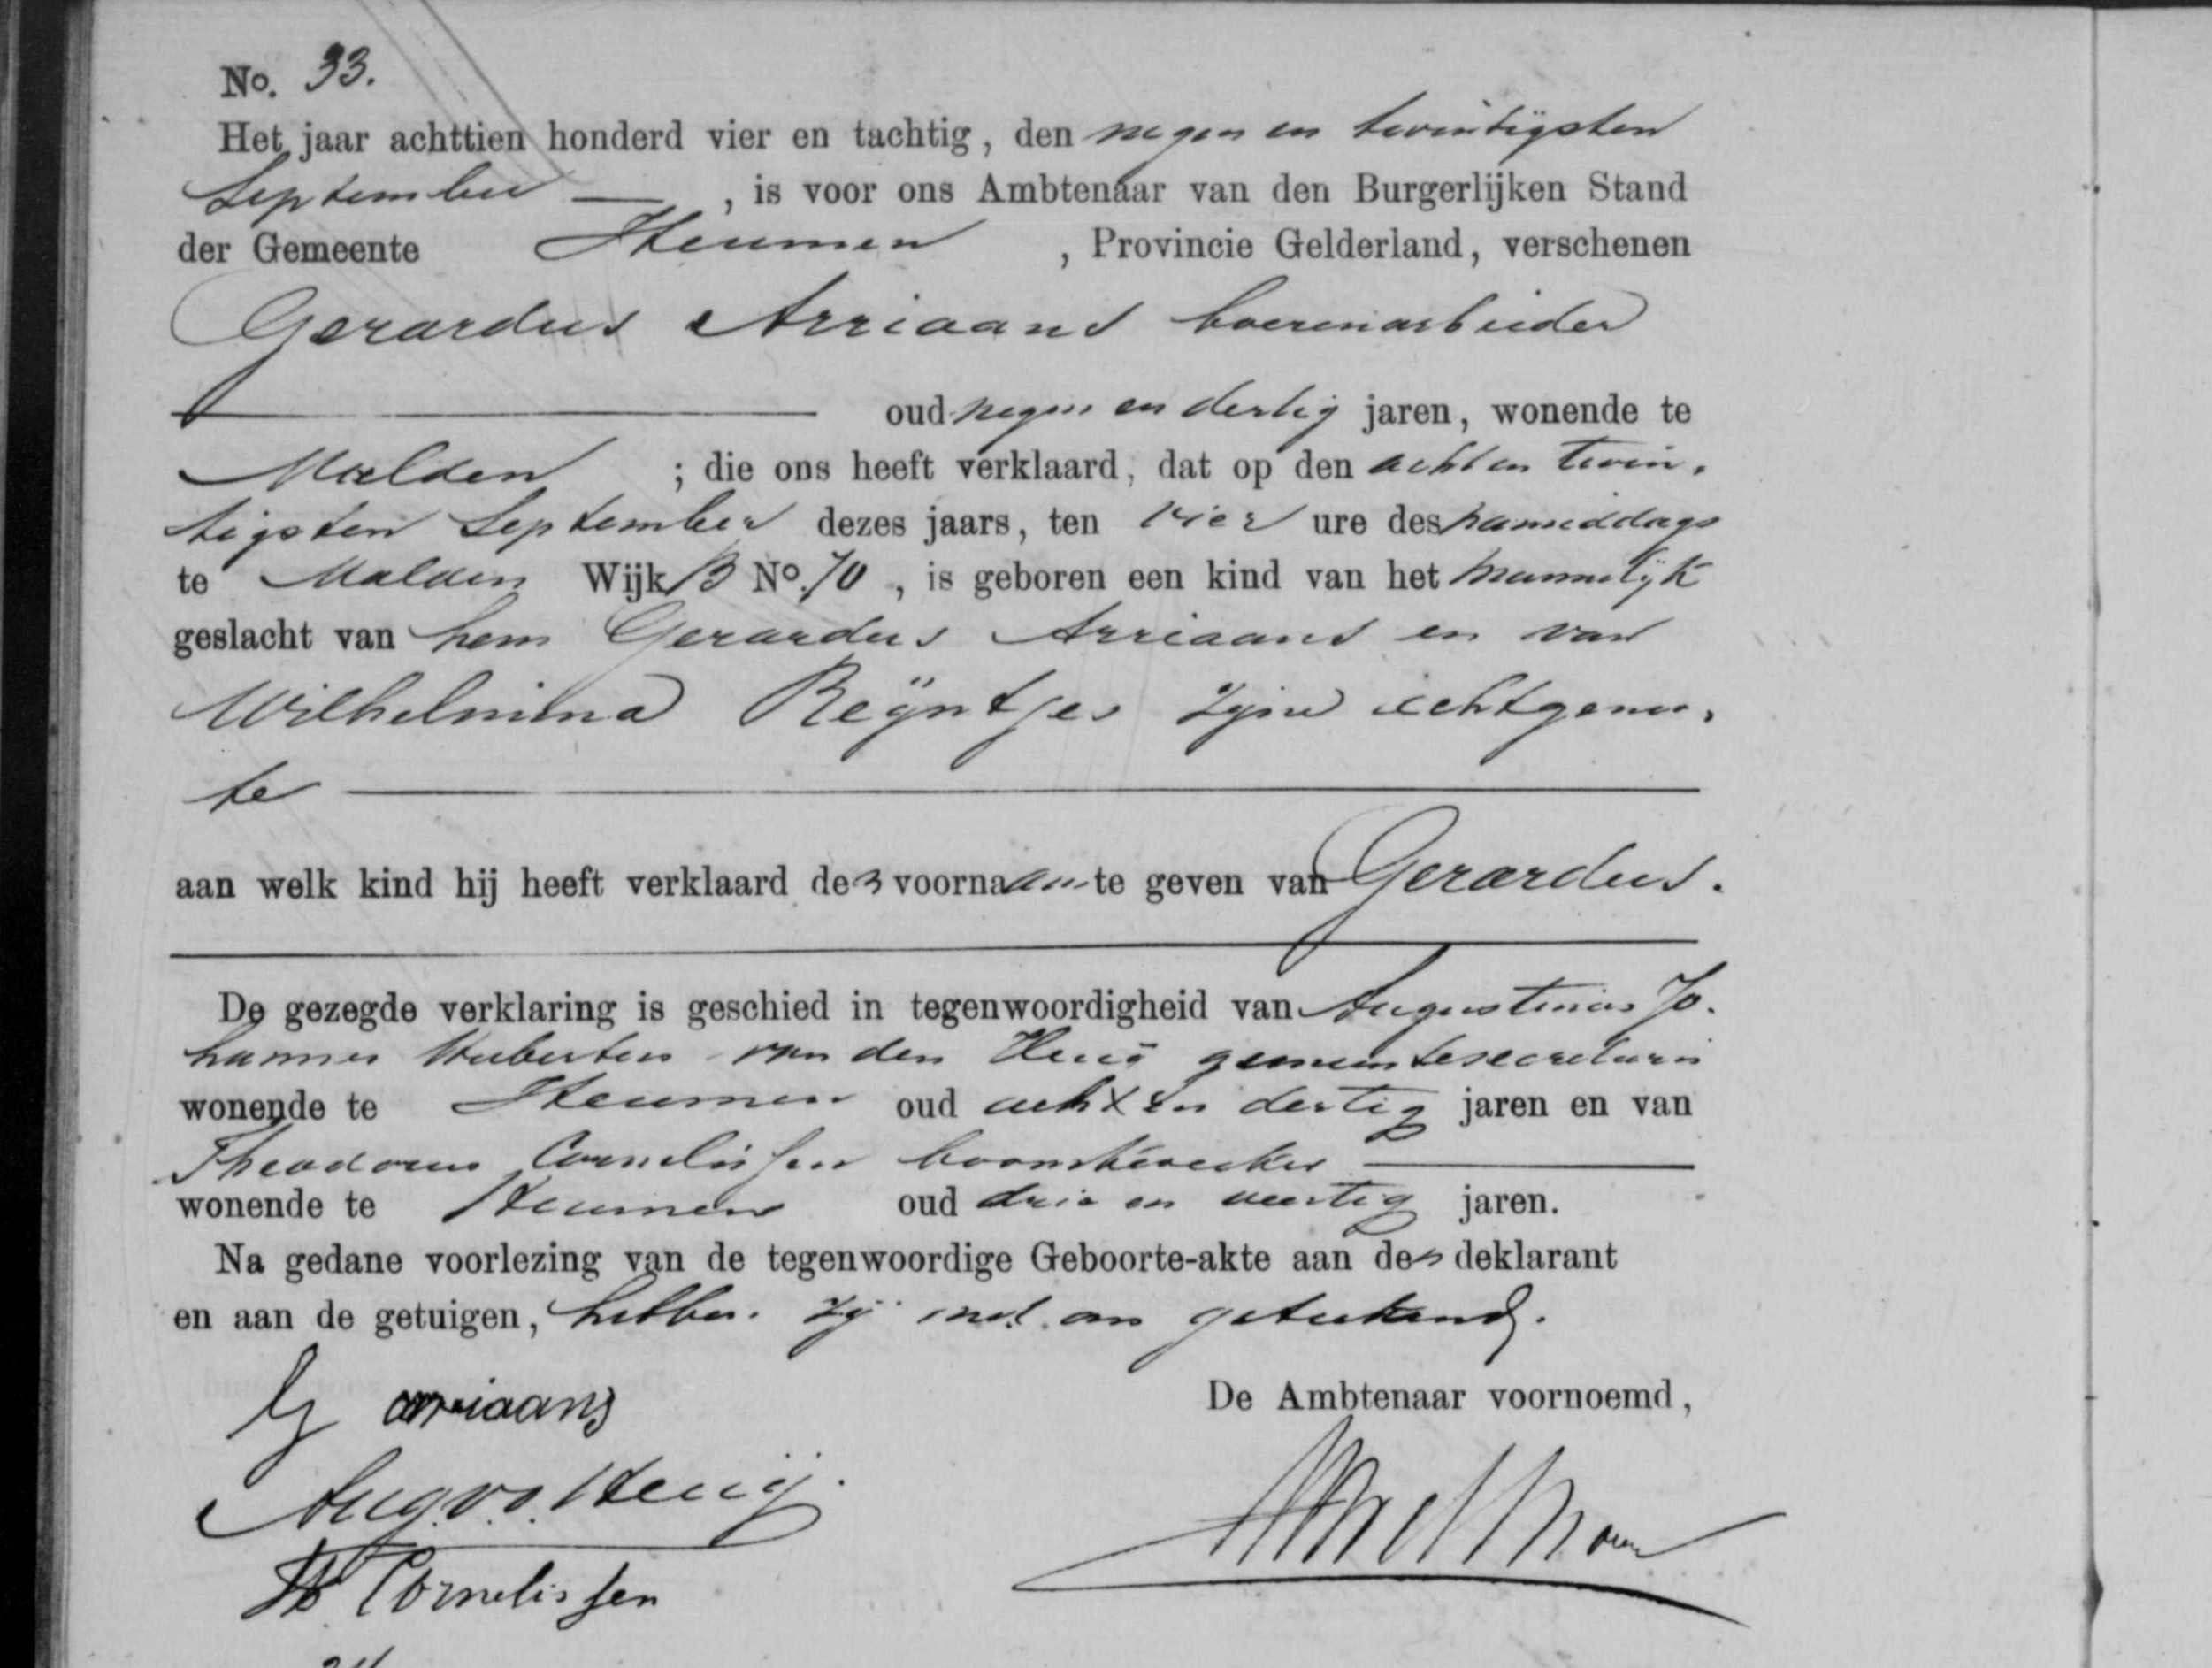 No. 33.
Het jaar achttien honderd vier en tachtig, den negen en twintigsten
September —, is voor ons Ambtenaar van den Burgerlijken Stand
der Gemeente Heumen, Provincie Gelderland, verschenen
Gerardus Arriaans boerenarbeider
oud negen en dertig jaren, wonende te
Malden; die ons heeft verklaard, dat op den achten twin-
tigsten September dezes jaars, ten vier ure des namiddags
te Malden Wijk B No. 70, is geboren een kind van het mannelijk
geslacht van hem Gerardus Arriaans en van
Wilhelmina Reijntjes zijne echtgenoo-
te
aan welk kind hij heeft verklaard den voornaam te geven van Gerardus.
De gezegde verklaring is geschied in tegenwoordigheid van Augustinus Jo-
hannes Hubertus van den Heuij gemeentesecretaris
wonende te Heumen oud acht en dertig jaren en van
Theodorus Cornelissen boomkweeker
wonende te Heumen oud drie en veertig jaren.
Na gedane voorlezing van de tegenwoordige Geboorte-akte aan den deklarant
en aan de getuigen, hebben zij met ons geteekend.
G arriaans
De Ambtenaar voornoemd,
Aug. v. d. Heuij.
Th Cornelissen